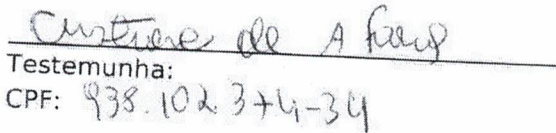 Cristiane de A
Testemunha:
CPF: 938.102.374-34